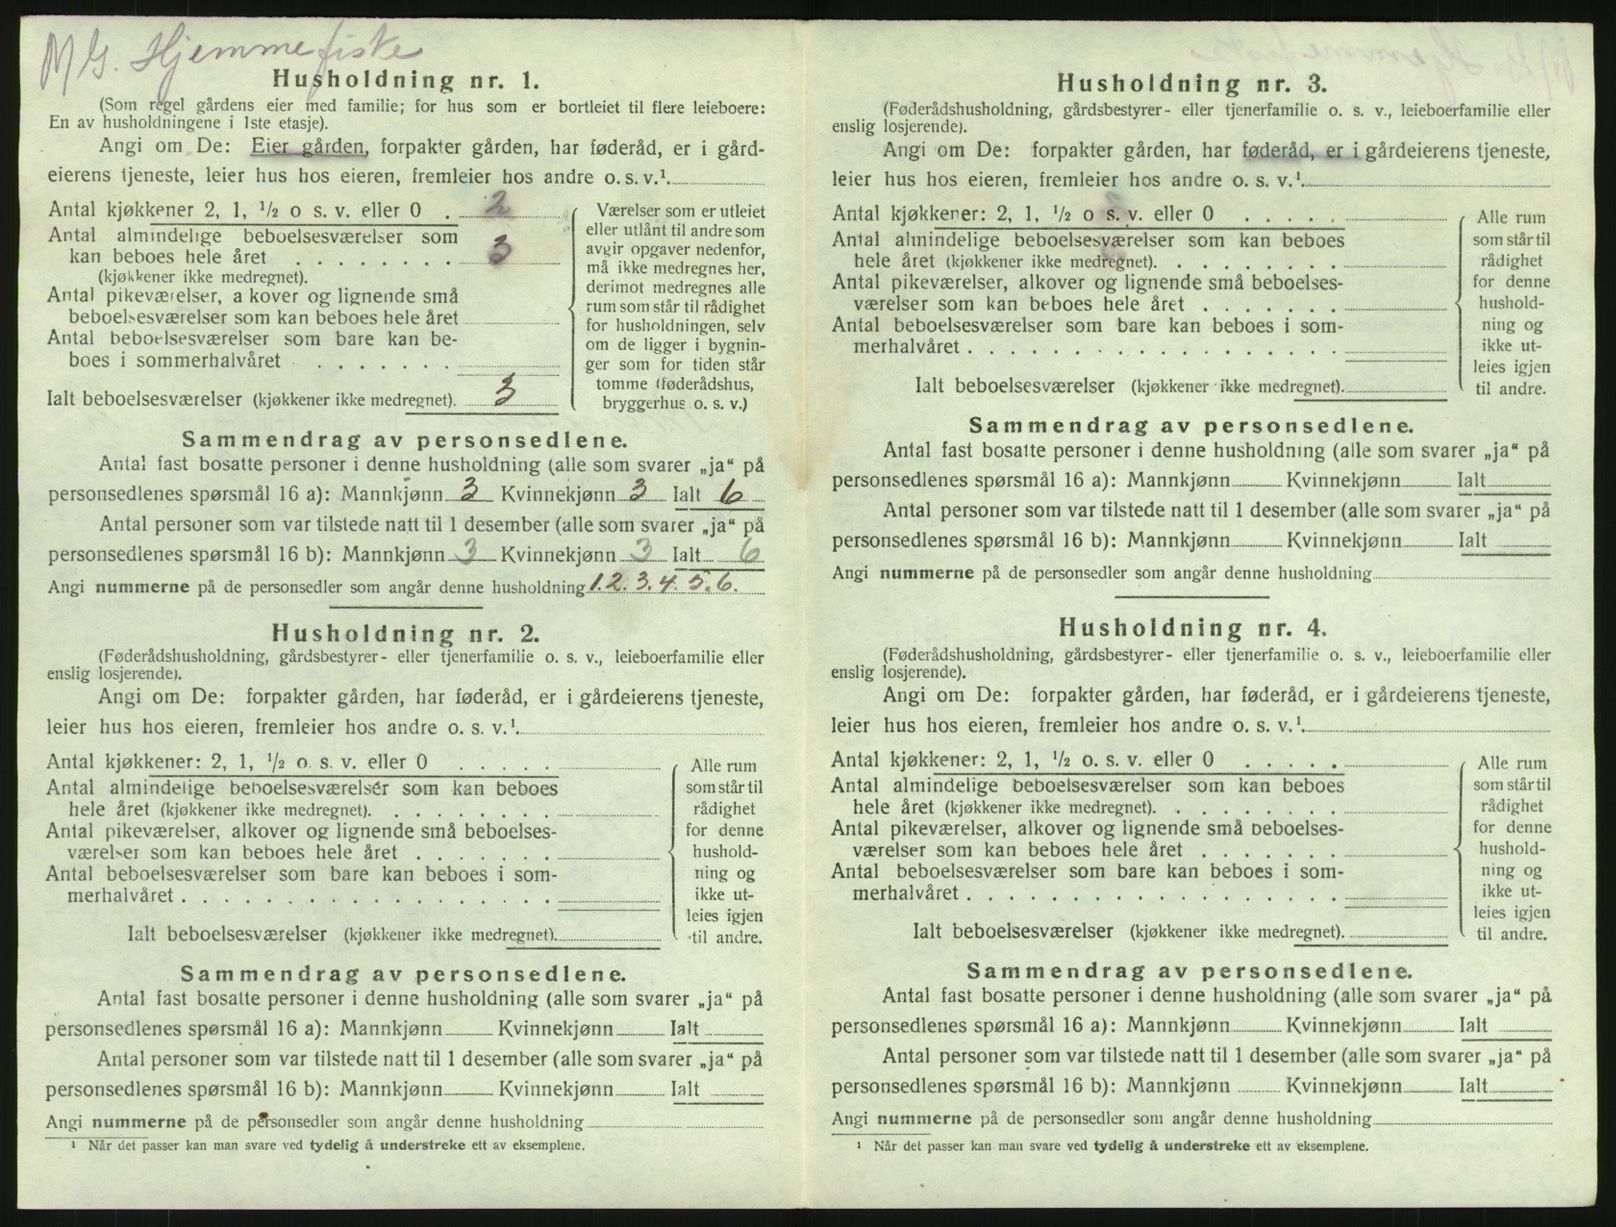 M/G. Hjemmefiske
Husholdning nr. 1.
(Som regel gårdens eier med familie; for hus som er bortleiet til flere leieboere:
En av husholdningene i 1ste etasje).
Angi om De: Eier gården, forpakter gården, har føderåd, er i gård-
eierens tjeneste, leier hus hos eieren, fremleier hos andre o. s. v.¹
Antal kjøkkener 2, 1, ½ o s. v. eller 0 . 2
Antal almindelige beboelsesværelser som
kan beboes hele året . . . . . . . . 3
(kjøkkener ikke medregnet).
Antal pikeværelser, a kover og lignende små
beboelsesværelser som kan beboes hele året
Antal beboelsesværelser som bare kan be-
boes i sommerhalvåret . . . . . . .
Ialt beboelsesværelser (kjøkkener ikke medregnet). 3
Værelser som er utleiet
eller utlånt til andre som
avgir opgaver nedenfor,
må ikke medregnes her,
derimot medregnes alle
rum som står til rådighet
for husholdningen, selv
om de ligger i bygnin-
ger som for tiden står
tomme (føderådshus,
bryggerhus o. s. v.)
Sammendrag av personsedlene.
Antal fast bosatte personer i denne husholdning (alle som svarer „ja“ på
personsedlenes spørsmål 16 a): Mannkjønn 3 Kvinnekjønn 3 Ialt 6
Antal personer som var tilstede natt til 1 desember (alle som svarer „ja“ på
personsedlenes spørsmål 16 b): Mannkjønn 3 Kvinnekjønn 3 Ialt 6
Angi nummerne på de personsedler som angår denne husholdning 1. 2. 3. 4. 5. 6.
Husholdning nr. 2.
(Føderådshusholdning, gårdsbestyrer- eller tjenerfamilie o. s. v., leieboerfamilie eller
enslig losjerende).
Angi om De: forpakter gården, har føderåd, er i gårdeierens tjeneste,
leier hus hos eieren, fremleier hos andre o. s. v.¹
Antal kjøkkener: 2, 1, ½ o. s. v. eller 0 . . . . .
Antal almindelige beboelsesværelser som kan beboes
hele året (kjøkkener ikke medregnet). . . . . . . . .
Antal pikeværelser, alkover og lignende små beboelses-
værelser som kan beboes hele året . . . . . . .
Antal beboelsesværelser som bare kan beboes i som-
merhalvåret . . . . . . . . . . . . . . . . . .
Ialt beboelsesværelser (kjøkkener ikke medregnet).
Alle rum
som står til
rådighet
for denne
hushold-
ning og
ikke ut-
leies igjen
til andre.
Sammendrag av personsedlene.
Antal fast bosatte personer i denne husholdning (alle som svarer „ja“ på
personsedlenes spørsmål 16 a): Mannkjønn Kvinnekjønn Ialt
Antal personer som var tilstede natt til 1 desember (alle som svarer „ja“ på
personsedlenes spørsmål 16 b): Mannkjønn Kvinnekjønn Ialt
Angi nummerne på de personsedler som angår denne husholdning
¹ Når det passer kan man svare ved tydelig å understreke ett av eksemplene.
Husholdning nr. 3.
(Føderådshusholdning, gårdsbestyrer- eller tjenerfamilie o. s. v., leieboerfamilie eller
enslig losjerende).
Angi om De: forpakter gården, har føderåd, er i gårdeierens tjeneste,
leier hus hos eieren, fremleier hos andre o. s. v.¹
Antal kjøkkener: 2, 1, ½ o s. v. eller 0 . . . . .
Antal almindelige beboelsesværelser som kan beboes
hele året (kjøkkener ikke medregnet). . . . . . . . .
Antal pikeværelser, alkover og lignende små beboelses-
værelser som kan beboes hele året . . . . . . .
Antal beboelsesværelser som bare kan beboes i som-
merhalvåret . . . . . . . . . . . . . . . . . .
Ialt beboelsesværelser (kjøkkener ikke medregnet).
Alle rum
som står til
rådighet
for denne
hushold-
ning og
ikke ut-
leies igjen
til andre.
Sammendrag av personsedlene.
Antal fast bosatte personer i denne husholdning (alle som svarer „ja“ på
personsedlenes spørsmål 16 a): Mannkjønn Kvinnekjønn Ialt
Antal personer som var tilstede natt til 1 desember (alle som svarer „ja“ på
personsedlenes spørsmål 16 b): Mannkjønn Kvinnekjønn Ialt
Angi nummerne på de personsedler som angår denne husholdning
Husholdning nr. 4.
(Føderådshusholdning, gårdsbestyrer- eller tjenerfamilie o. s. v., leieboerfamilie eller
enslig losjerende).
Angi om De: forpakter gården, har føderåd, er i gårdeierens tjeneste,
leier hus hos eieren, fremleier hos andre o. s. v.¹
Antal kjøkkener: 2, 1, ½ o. s. v. eller 0 . . . . .
Antal almindelige beboelsesværelser som kan beboes
hele året (kjøkkener ikke medregnet). . . . . . . . .
Antal pikeværelser, alkover og lignende små beboelses-
værelser som kan beboes hele året . . . . . . .
Antal beboelsesværelser som bare kan beboes i som-
merhalvåret . . . . . . . . . . . . . . . . . .
Ialt beboelsesværelser (kjøkkener ikke medregnet).
Alle rum
som står til
rådighet
for denne
hushold-
ning og
ikke ut-
leies igjen
til andre.
Sammendrag av personsedlene.
Antal fast bosatte personer i denne husholdning (alle som svarer „ja“ på
personsedlenes spørsmål 16 a): Mannkjønn Kvinnekjønn Ialt
Antal personer som var tilstede natt til 1 desember (alle som svarer „ja“ på
personsedlenes spørsmål 16 b): Mannkjønn Kvinnekjønn Ialt
Angi nummerne på de personsedler som angår denne husholdning
¹ Når det passer kan man svare ved tydelig å understreke ett av eksemplene.